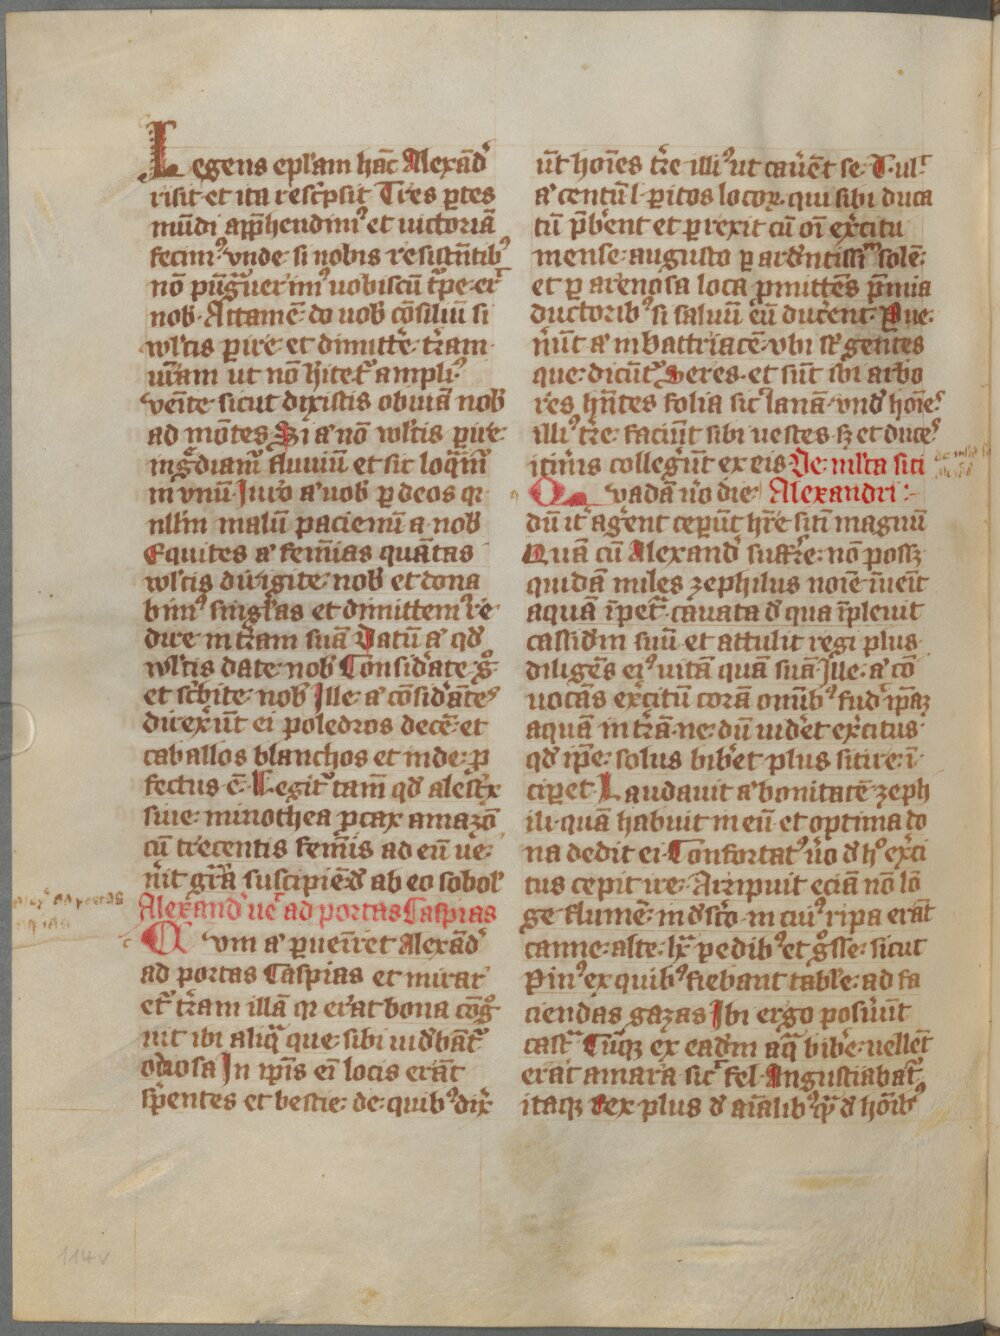 Legens epl'am hāc Alexād'
risit et ita resc͛psit Tres ꝑtes
mūdi app̄hendimꝰ et uictoriā
fecimꝰ vnde si nobis resistn̄tibꝰ
nō pūgᷓuerimꝰ uobiscū t͛pe er͛
nob̵. Attamē do uob̵ cōsiliū si
wltis ꝑire et dimitt͛e t͛ram
ur̄am ut nō h̄itet᷑ ampliꝰ
venīte sicut dixistis obuiā nob̵
ad mōtes Si aͤ nō wltis ꝑire
ingᷓdiam᷑ fluuiū et sic loqᷓm᷑
in vnū Iuro aͤ uob̵ ꝑ deos qꝛ
nllm̄ malū paciemī a nob̵
Equites aͤ femīas quātas
wltis dirigite nob̵ et dona
bimꝰ sing̵las et dimittemꝰ re
dire in t͛ram suā Datū aͤ qd̵
wltis date nob̵ Consid͛ate g̊
et sc͛bite nob̵ Ille aͤ cōsid͛ātes
direx͛ūt ei poledros decē et
caballos blanchos et inde ꝓ
fectus ē. Legit᷑ tam̄ qd̵ alest͛x
siue minothea ꝓcax amazō
cū trecentis femīs ad eū ve
n͛it gr̄a suscipiēd̵ ab eo sobol'
Alexand̵ ue͛ ad portas Caspias
Cvm aͤ ꝑuenīret Alexād̵
ad portas Caspias et mirar
et᷑ t͛ram illā qꝛ erat bona cōg
uit ibi aliqᷓ que sibi uid̵bāt᷑
odiosa In ip̄is ei͛ locis erāt
s͛pentes et bestie de quibꝰ dix͛
ūt hoīes t͛re illiꝰ ut cau͛ēt se T͛ ul᷑
aͤ centū l ꝑitos locoꝝ qui sibi duca
tū p͛b͛ent et ꝑrexit cū oī ex͛citu
mense augusto ꝑ ard̵ntissīm solē
et ꝑ arenosa loca ꝓmittēs p͛mia
ductoribꝰ si saluū eū duc͛ent Pue
n͛ūt aͤ in battriacē vbi sͭ gentes
que dicūt᷑ Seres et sūt ibi arbo
res hn̄tes folia sic᷑ lanā vnd̵ hoīes
illiꝰ t͛re faciūt sibi uestes sꝫ et duces
itin͛is colleg͛ūt ex eis De m͛l'ta siti
Quadā ūo die Alexandri
dū it᷑ ag͛ent ceperūt hr̄e sitī magnū
Quā cū Alexand̵ suffr͛e nō possꝫ
quidā miles zephilus noīe īueīt
aquā ī pet᷑ cauata d̵ qua īpleuit
cassid̵m suū et attulit regi plus
diligēs eiꝰ uitā quā suā Ille aͤ cō
uocās ex͛citū corā omībꝰ fud͛ ip̄aꝫ
aquā in t͛rā ne dū uid͛et ex͛citus
qd̵ ip̄e solus bib͛et plus sitire ī
cip͛et Laudauit aͤ bonitatē zeph
ili quā habuit in eū et optima do
na dedit ei Confortatꝰ ūo d̵ hͦ ex͛ci
tus cepit ire Arripuit eciā nō lō
ge flumē ind̵sc͛to in cuiꝰ ripa erāt
canne alte lx pedibꝰ et g̊sse sicut
Pinꝰ ex quibꝰ fiebant tabl'e ad fa
ciendas gazas Ibi ergo posu͛ūt
cast᷑ Cūqꝫ ex ead̵m aqᷓ bib͛e uellēt
erāt amara sic᷑ fel Angustiabat᷑
itaqꝫ Rex plus d̵ aīalibꝰ qᷓ d̵ hoībꝰ
114v